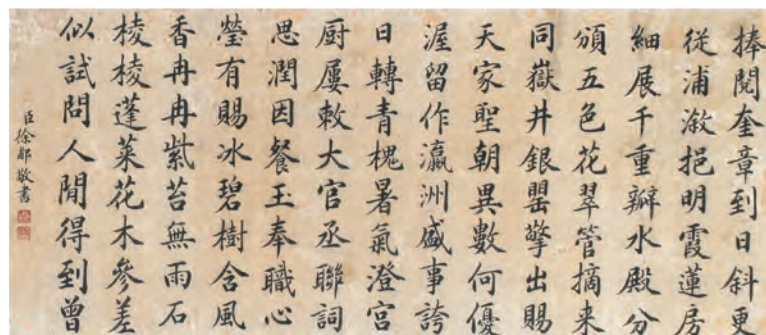 捧閱奎章到日斜更
從浦漵挹明霞蓮房
細展千重瓣水殿分
頒五色花翠管摘来
同嶽井銀罌擎出賜
天家聖朝異數何優
渥留作瀛洲盛事誇
日轉青槐暑氣澄宮
厨屢敕大官丞聯詞
思潤因餐玉奉職心
瑩有賜冰碧樹含風
香冉冉紫苔無雨石
棱棱蓬萊花木參差
似試問人閒得到曾
臣徐郙敬書